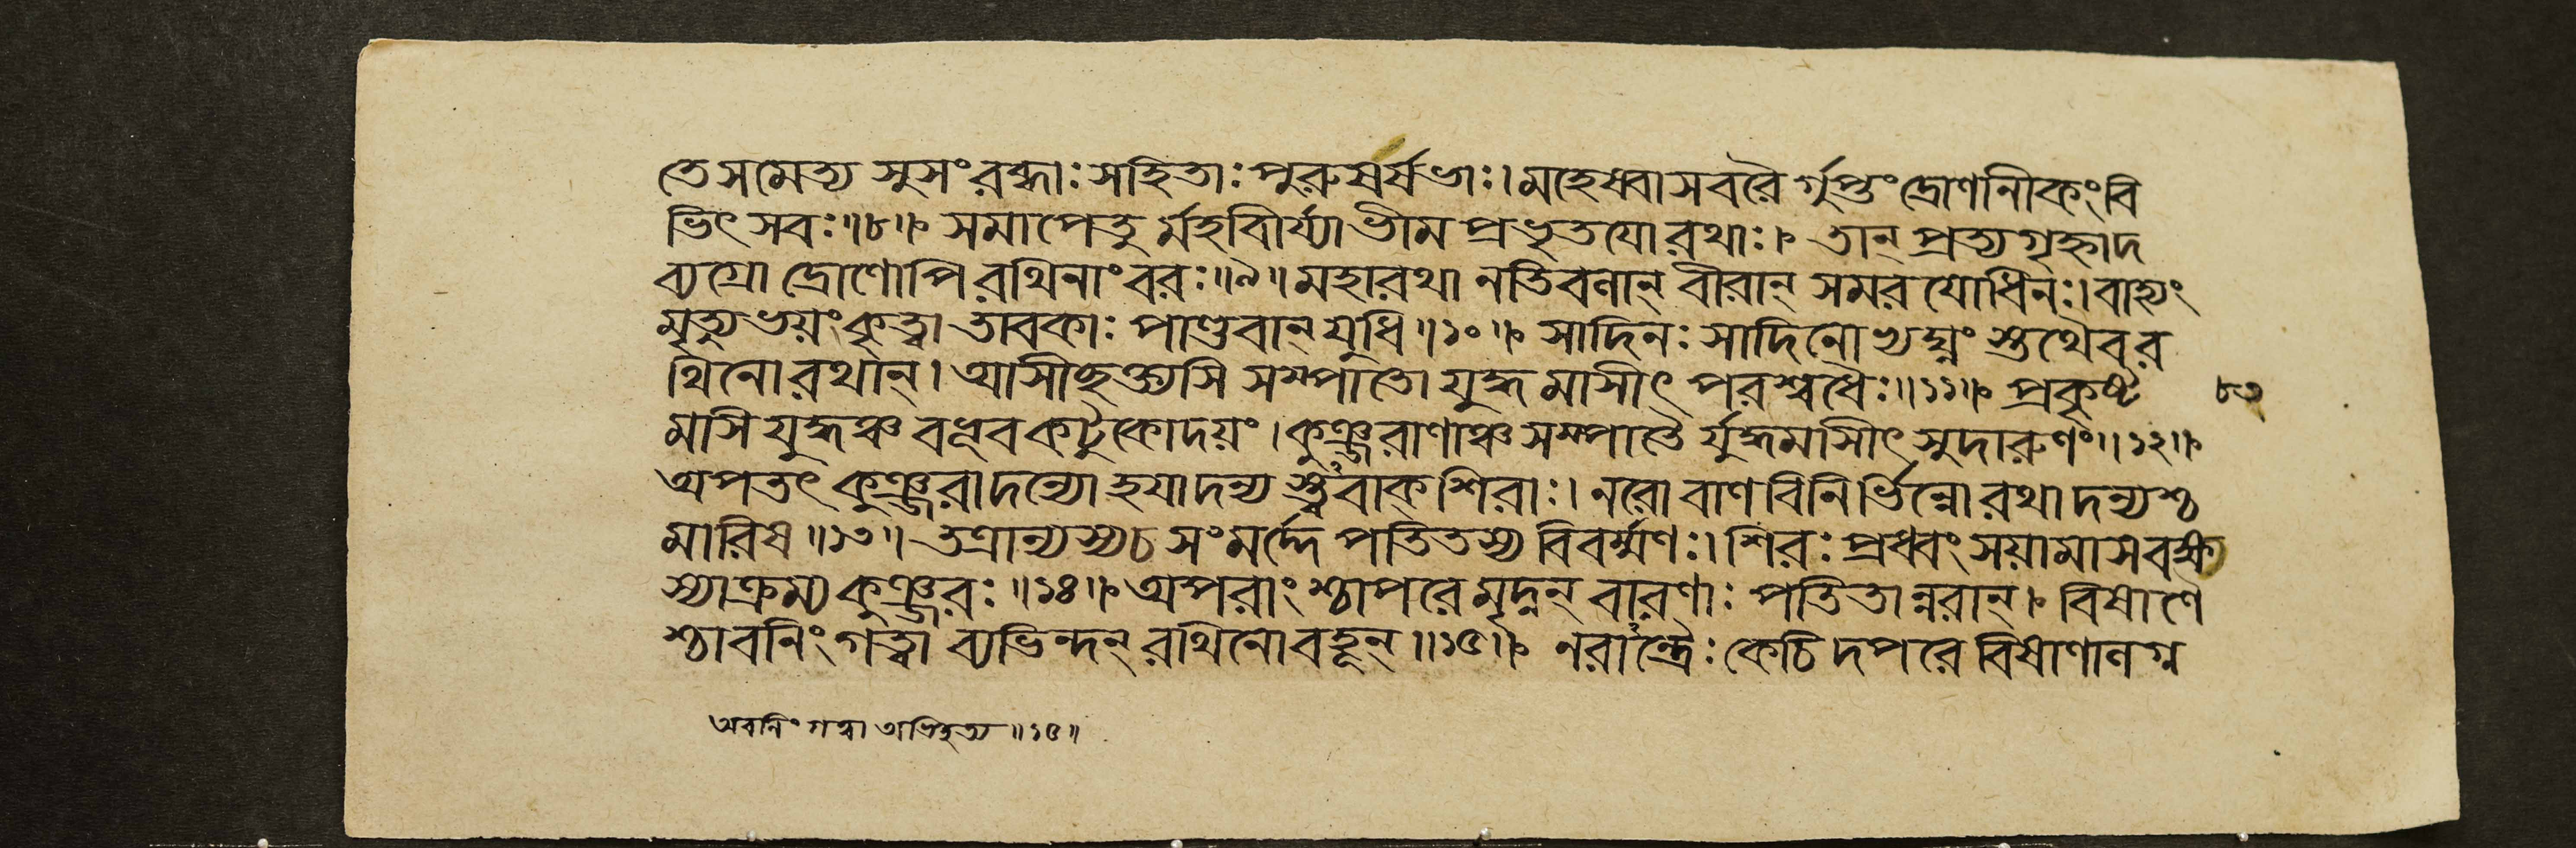 তে সমেত্য সুসংরব্ধাঃ সহিতাঃ পুরুষর্ষভাঃ। মহেষ্বাসবরৈ র্গুপ্তং দ্রোণানীকং বি
ভিৎসবঃ॥৮॥ সমাপেতু র্মহাবীর্য্যা ভীম প্রভৃতযো রথাঃ। তান্ প্রত্যগৃহ্নাদ
ব্যগ্রো দ্রোণোপি রথিনাং বরঃ॥৯॥ মহারথা নতিবলান্ বীরান্ সমর যোধিনঃ। বাহ্যং
মৃত্যুভয়ং কৃত্বা তাবকাঃ পাণ্ডবান্ যুধি॥১০॥ সাদিনঃ সাদিনো ভ্যঘ্নং স্তথৈব র
থিনো রথান্। আসীচ্ছক্ত্যসি সম্পাতো যুদ্ধমাসীৎ পরশ্বধৈঃ॥১১॥ প্রকৃষ্ট
মসি যুদ্ধঞ্চ বভূব কটুকোদয়ং। কুঞ্জরাণাঞ্চ সম্পাতৈ র্যুদ্ধমাসীৎ সুদারুণং॥১২॥
অপতৎ কুঞ্জরাদন্যো হযাদন্য স্ত্ববাক্ শিরাঃ। নরো বাণ বিনির্ভিন্নো রথাদন্যশ্চ
মারিষ॥১৩॥ তত্রান্যস্য চ সংমর্দ্দে পতিতস্য বিবর্ম্মণঃ। শিরঃ প্রধ্বংসয়ামাস বক্ষ
স্যাক্রম্য কুঞ্জরঃ॥১৪॥ অপরাংশ্চাপরে মৃদ্নন্ বারণাঃ পতিতান্নরান্। বিষাণৈ
শ্চাবনিং গত্বা ব্যভিন্দন্ রথিনো বহূন্॥১৫॥ নরান্ত্রৈঃ কেচিদপরে বিষাণালগ্ন
৮৩
অবনিং গত্বা
॥১৫॥